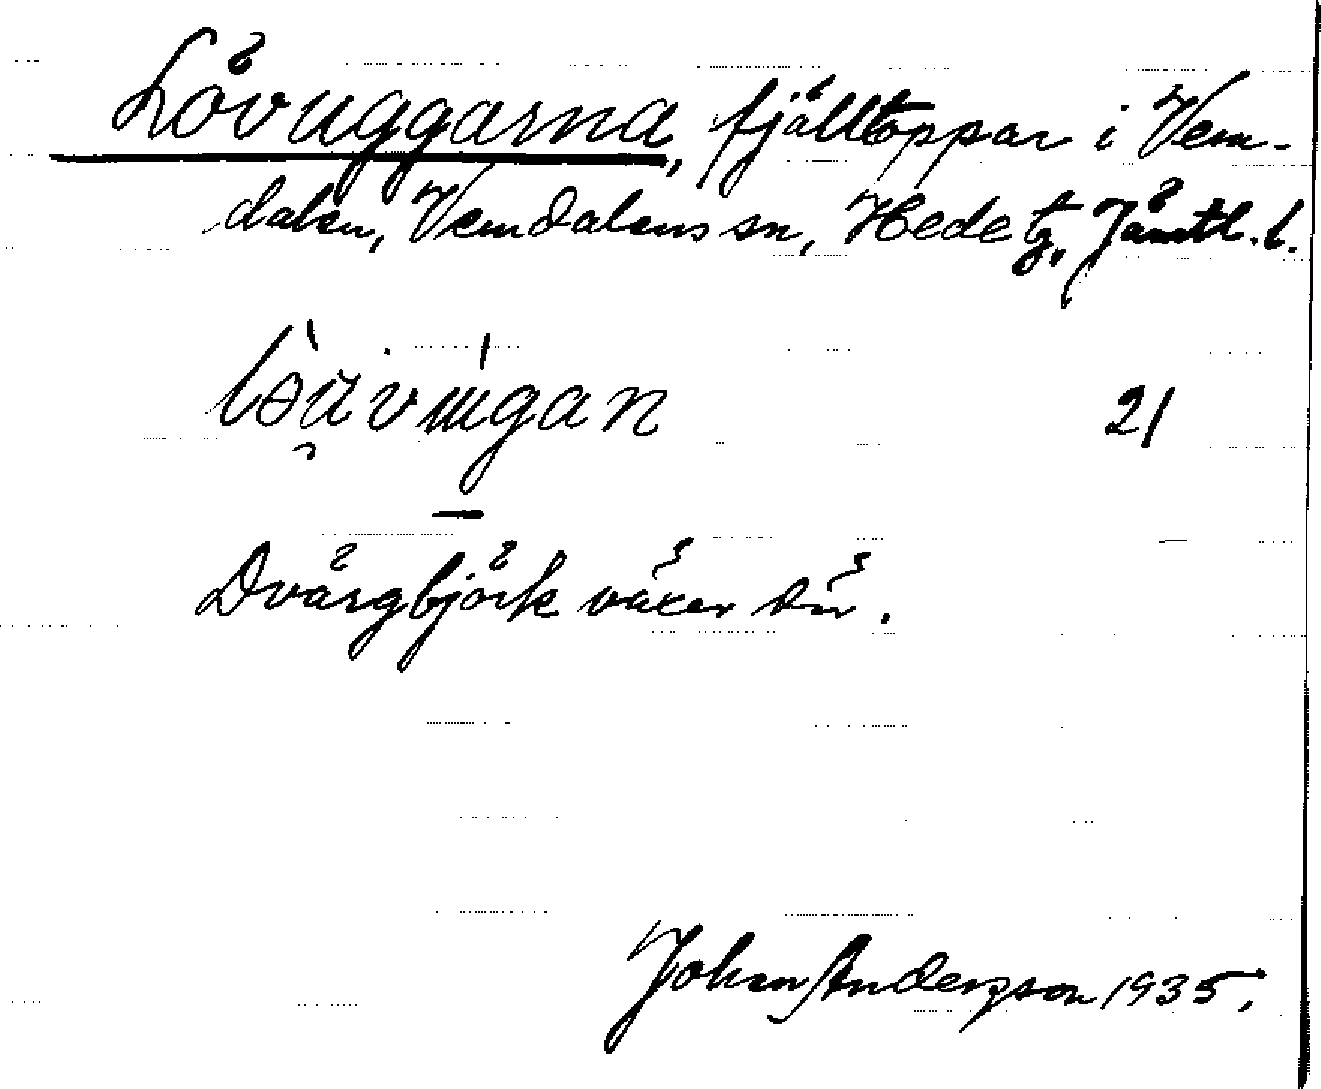 Lövuggarna, fjälltoppar i Vem-
dalen, Vemdalens sn, Hede tg, Jämtl. l.
21
Dvärgbjörk växer där.
Johan Anderzson 1935.